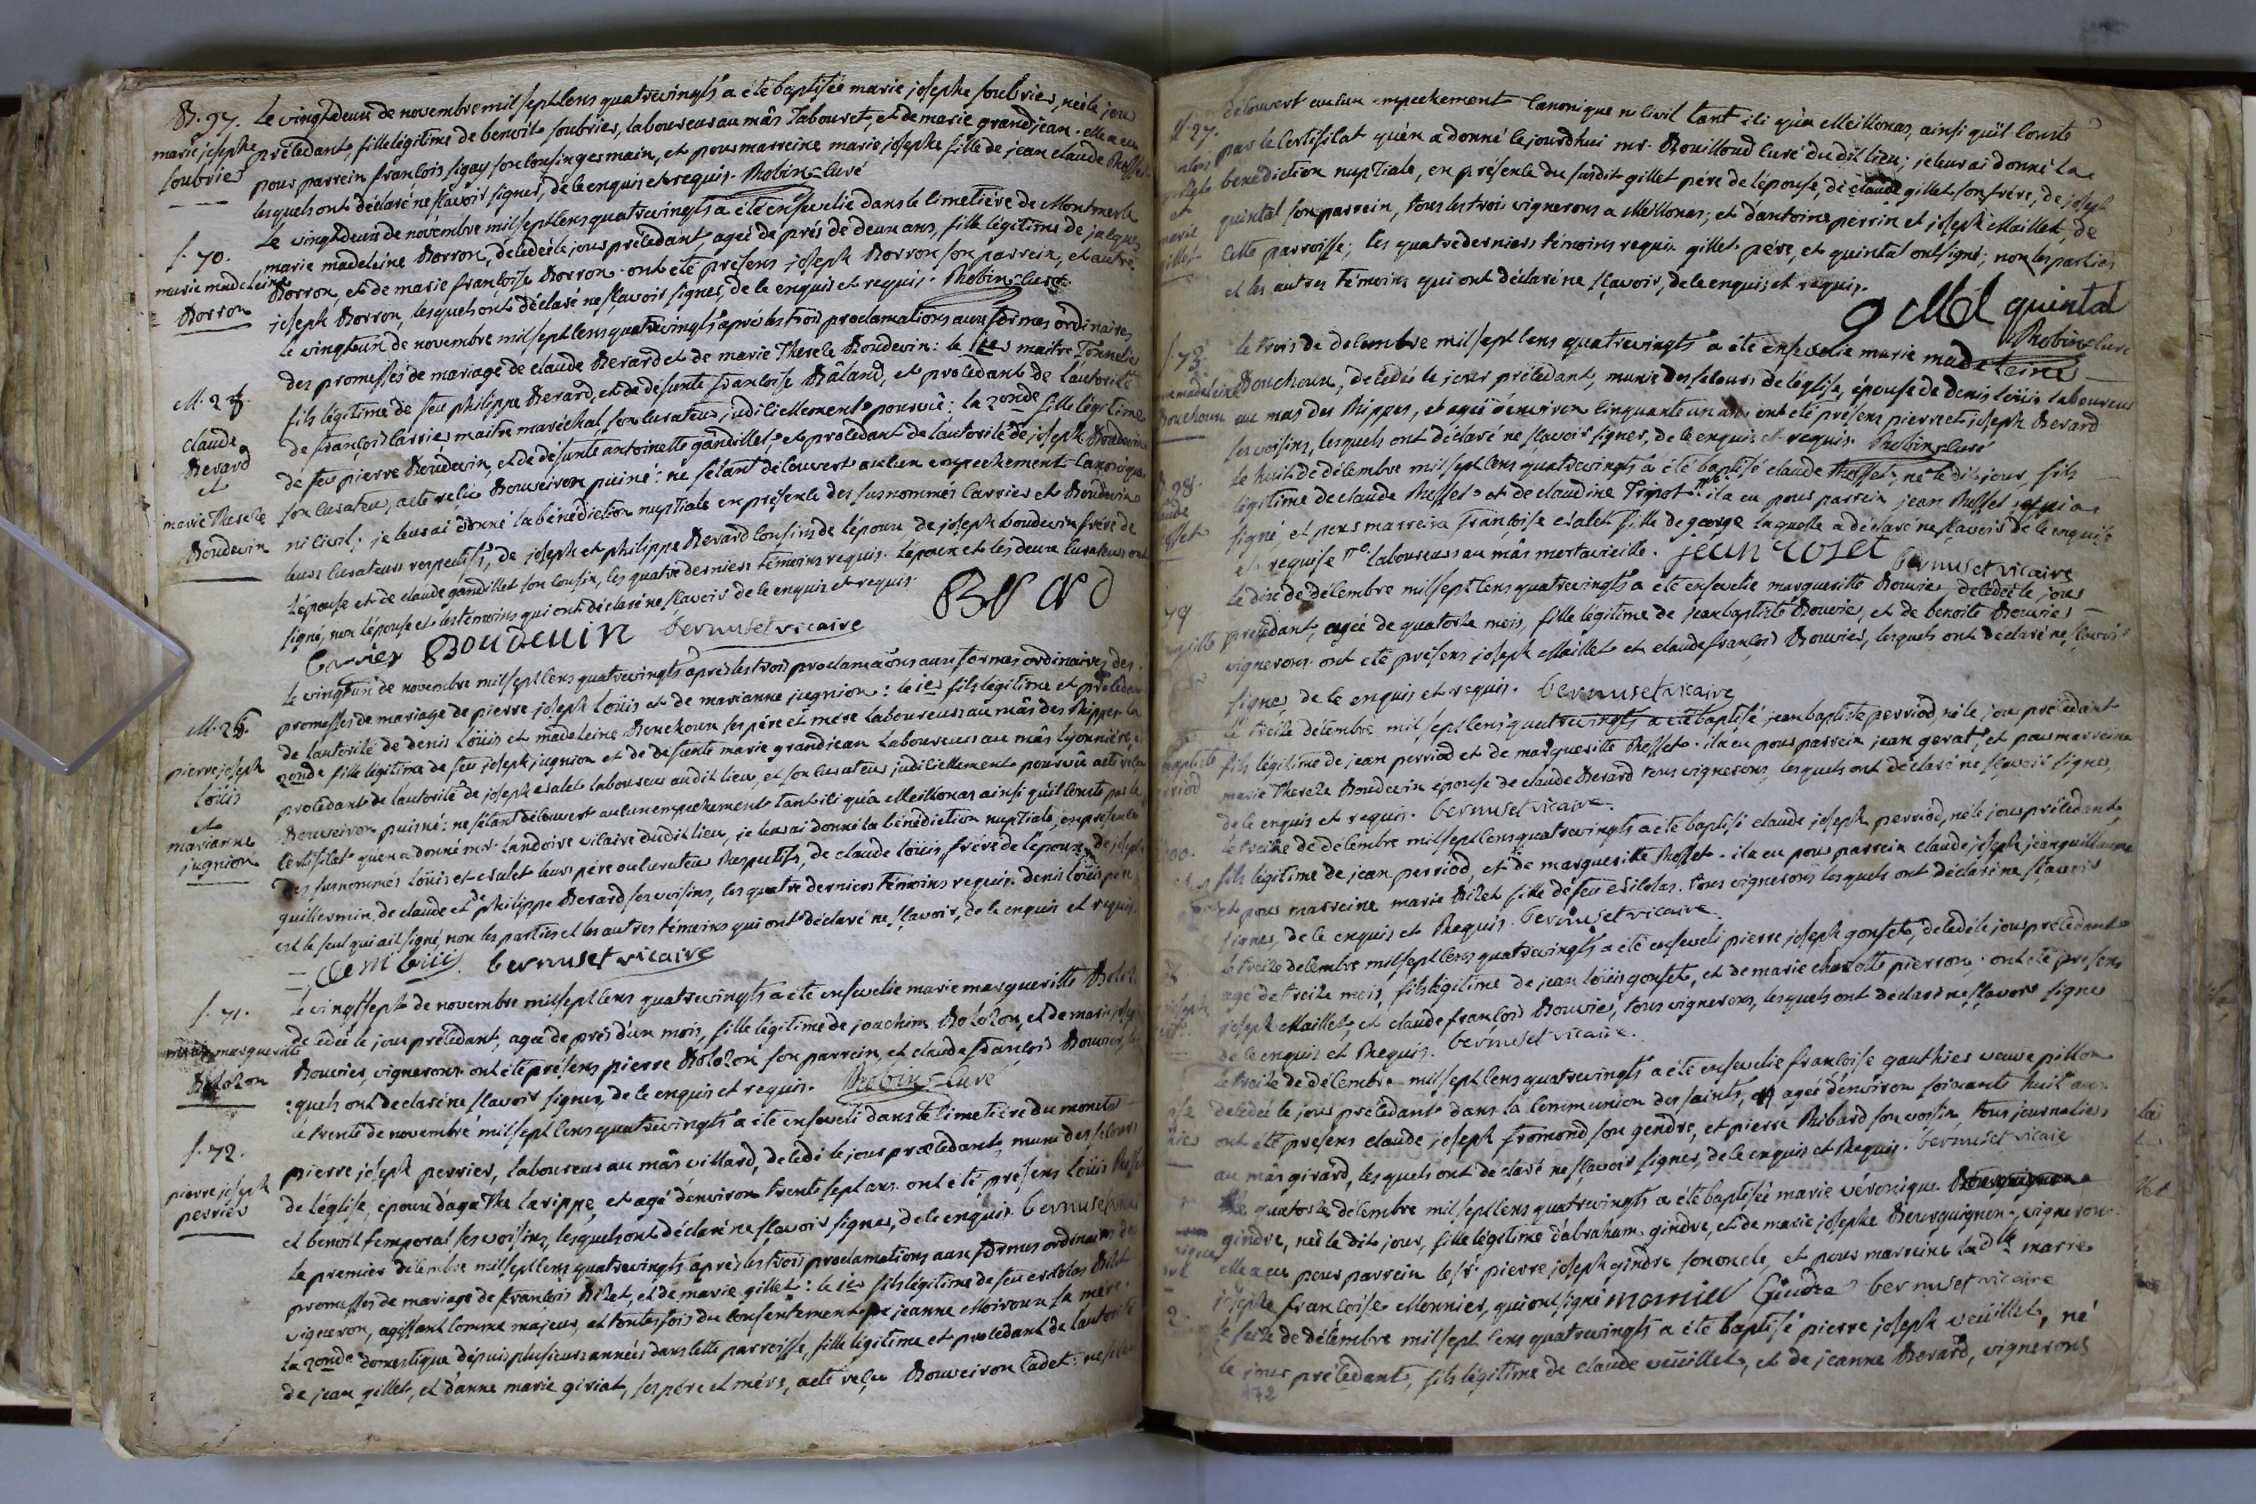 B. 97. Le vingt deux de novembre mil sept cens quatrevingts a été baptisée marie josephe soubrier, née le jour
marie josephe précedant, fille légitime de benoit soubrier, laboureur au mâs Tabouret, et de marie grandjean. elle a eu
soubrier pour parrein françois sigay son cousin germain, et pour marreine marie josephe fille de jean claude
lesquels ont déclaré ne sçavoir signer, de ce enquis et requis. Robin curé
Le vingt deux de novembre mil sept cens quatrevingts a été ensevelie dans le cimetière de Montmerle
s. 70. marie madeleine Borron, décedée le jour précedant, agée de près de deux ans, fille légitime de jacques
marie madeleine Borron, et de marie françoise Borron. ont été présens joseph Borron son parrein, et autre
Borron joseph Borron, lesquels ont déclaré ne sçavoir signer, de ce enquis et requis. Robin curé
Le vingt un de novembre mil sept cens quatrevingts après les trois proclamations aux formes ordinaires
des promesses de mariage de claude Berard et de marie Thereze Boudevin: le 1er maitre Tonnelier
M. 25. fils légitime de feu philippe Berard, et de défunte françoise Bâland, et procedant de l'autorité
claude de françois carrier maitre maréchal son curateur judiciellement pourvû: la 2onde fille légitime
Berard de feu pierre Boudevin, et de défunte antoinette gandillet et procedant de l'autorité de joseph Boudevin
et son curateur, acte reçu Bouveiron puiné: ne s'étant découvert aucun empechement canonique
marie Thereze ni civil; je leur ai donné la bénédiction nuptiale en présence des susnommés Carrier et Boudevin
Boudevin leurs curateurs respectifs, de joseph et philippe Berard cousins de l'époux, de joseph boudevin frère de
l'épouse et de claude gandillet son cousin, les quatre derniers témoins requis. l'époux et les deux curateurs ont
signé, non l'épouse et les témoins qui ont déclaré ne sçavoir de ce enquis et requis.
Carrier BOUDEUIN bernuset vicaire
Le vingt un de novembre mil sept cens quatrevingts après les trois proclamations aux formes ordinaires des
promesses de mariage de pierre joseph Loüis et de marianne jugnion: le 1er fils légitime et procedant
M. 26. de l'autorité de denis Loüis et madeleine Bouchoux ses père et mère laboureurs au mâs des Rippes la
pierre joseph 2onde fille légitime de feu joseph jugnion et de défunte marie grandjean laboureurs au mâs lyonnière,
Loüis procedant de l'autorité de joseph esalet laboureur au dit lieu, et son curateur judiciellement pourvû acte reçu
et Bouveiron puisné: ne s'étant découvert aucun empechement tant ici qu'à Meillonas ainsi qu'il conste par le
marianne Certificat qu'en a donné mr. Landoire vicaire du dit lieu, je leur ai donné la bénédiction nuptiale, en présence
jugnion des susnommés Loüis et esalet leurs père ou curateur Respectifs, de claude Loüis, frère de l'époux, de joseph
guillermin, de claude et de philippe Berard ses voisins, les quatre derniers témoins requis. denis Loüis père
est le seul qui ait signé, non les parties et les autres témoins qui ont déclaré ne sçavoir, de ce enquis et requis.
bernuset vicaire
s. 71. Le vingt sept de novembre mil sept cens quatrevingts a été ensevelie marie margueritte Bolozon
marie marguerite décedée le jour précedant, agée de près d'un mois, fille légitime de joachim Bolozon, et de marie
Bolozon Bouvier, vignerons. ont été présens pierre Bolozon son parrein, et claude françois Bouvier, les
quels ont déclaré ne sçavoir signer, de ce enquis et requis. Robin curé
s. 72. Le trente de novembre mil sept cens quatrevingts a été enseveli dans le cimetière du moneté
pierre joseph pierre joseph perrier, laboureur au mâs villard, décedé le jour précedant, muni des secours
perrier de l'église, époux d'agathe larippe, et agé d'environ trente sept ans. ont été présens Loüis
et benoit temporal ses voisins, lesquels ont déclaré ne sçavoir signer, de ce enquis. bernuset
Le premier décembre mil sept cens quatrevingts après les trois proclamations aux formes ordinaires des
promesses de mariage de françois Bizet, et de marie gillet: le 1er fils légitime de feu nicolas Bizet
vigneron, agissant comme majeur, et toutesfois du consentement de jeanne Moiroux sa mère.
La 2onde domestique dépuis plusieurs années dans cette parroisse, fille légitime et procedant de l'autorité
de jean gillet, et d'anne marie giriat, ses père et mère, acte reçu Bouveiron Cadet: ne s'étant
découvert aucun empechement Canonique ni civil tant ici qu'à Meillonas, ainsi qu'il conste
par le Certificat qu'en a donné le jourdhui mr. Bouilloud curé du dit lieu; je leur ai donné la
bénédiction nuptiale, en présence du susdit gillet père de l'épouse, de claude gillet son frère, de joseph
quintal son parrein, tous les trois vignerons a Meillonas; et d'antoine perrin et joseph Maillet, de
cette parroisse; les quatre derniers témoins requis. gillet père, et quintal ont signé; non les parties
et les autres témoins qui ont déclaré ne sçavoir, de ce enquis et requis.
quintal
Robin curé
s. 73. Le trois de decembre mil sept cens quatrevingts a été ensevelie marie madeleine
Bouchoux, décedée le jour précedant, munie des secours de l'église, épouse de denis Loüis laboureur
au mas des Rippes, et agée d'environ cinquante un ans. ont été présens pierre et joseph Berard
ses voisins, lesquels ont déclaré ne sçavoir signer, de ce enquis et requis. Robin curé
98. Le huit de décembre mil sept cens quatrevingts a été baptisé claude Rosset, né le dit jour, fils
légitime de claude Rosset et de claudine Tignot. il a eu pour parrein jean Rosset qui a
signé, et pour marreine françoise esalet fille de george laquelle a déclaré ne sçavoir de ce enquise
et requise. laboureurs au mâs mortavieille. jean roset bernuset vicaire
Le dix de décembre mil sept cens quatrevingts a été ensevelie marguerite Bouvier, decedée le jour
précedant, agée de quatorze mois, fille légitime de jean baptiste Bouvier, et de benoite Bouvier
vignerons. ont été présens joseph Maillet et claude françois Bouvier, lesquels ont déclaré ne sçavoir
signer de ce enquis et requis. bernuset vicaire
Le treize décembre mil sept cens quatrevingts a été baptisé jean baptiste perriod, né le jour précedant
fils légitime de jean perriod et de marguerite Rosset. il a eu pour parrein jean gerat, et pour marreine
marie Thereze Boudevin épouse de claude Berard tous vignerons, lesquels ont déclaré ne sçavoir signer,
de ce enquis et requis. bernuset vicaire.
100. Le treize de décembre mil sept cens quatrevingts a été baptisé claude joseph perriod, né le jour précedant
fils légitime de jean perriod, et de marguerite Rosset. il a eu pour parrein claude joseph jeanguillaume
et pour marreine marie Bizet fille de feu Nicolas. tous vignerons lesquels ont déclaré ne sçavoir
signer, de ce enquis et Requis. bernuset vicaire.
Le treize decembre mil sept cens quatrevingts a été enseveli pierre joseph gonset, décedé le jour précedant
agé de treize mois, fils légitime de jean loüis gonset, et de marie charlotte pierron; ont été présens
joseph Maillet, et claude françois Bouvier, tous vignerons, lesquels ont déclaré ne sçavoir signer
de ce enquis et Requis. bernuset vicaire.
Le treize de décembre mil sept cens quatrevingts a été ensevelie françoise gauthier veuve pillon
decedée le jour précedant dans la Communion des saints, agée d'environ soixante huit ans
ont été présens claude joseph fromond son gendre, et pierre Ribard son voisin tous journaliers
au mâs girard, lesquels ont déclaré ne sçavoir signer, de ce enquis et Requis. bernuset vicaire
Le quatorze décembre mil sept cens quatrevingts a été baptisée marie véronique
gindre, née le dit jour, fille légitime d'abraham gindre, et de marie josephe Bourguignon, vignerons.
elle a eu pour parrein le sr. pierre joseph gindre son oncle, et pour marreine la dlle marie
josephe françoise Monnier, qui ont signé monnier Gindre bernuset vicaire
Le seize de décembre mil sept cens quatrevingts a été baptisé pierre joseph veuillet, né
le jour précedant, fils légitime de claude veuillet, et de jeanne Berard, vignerons
472